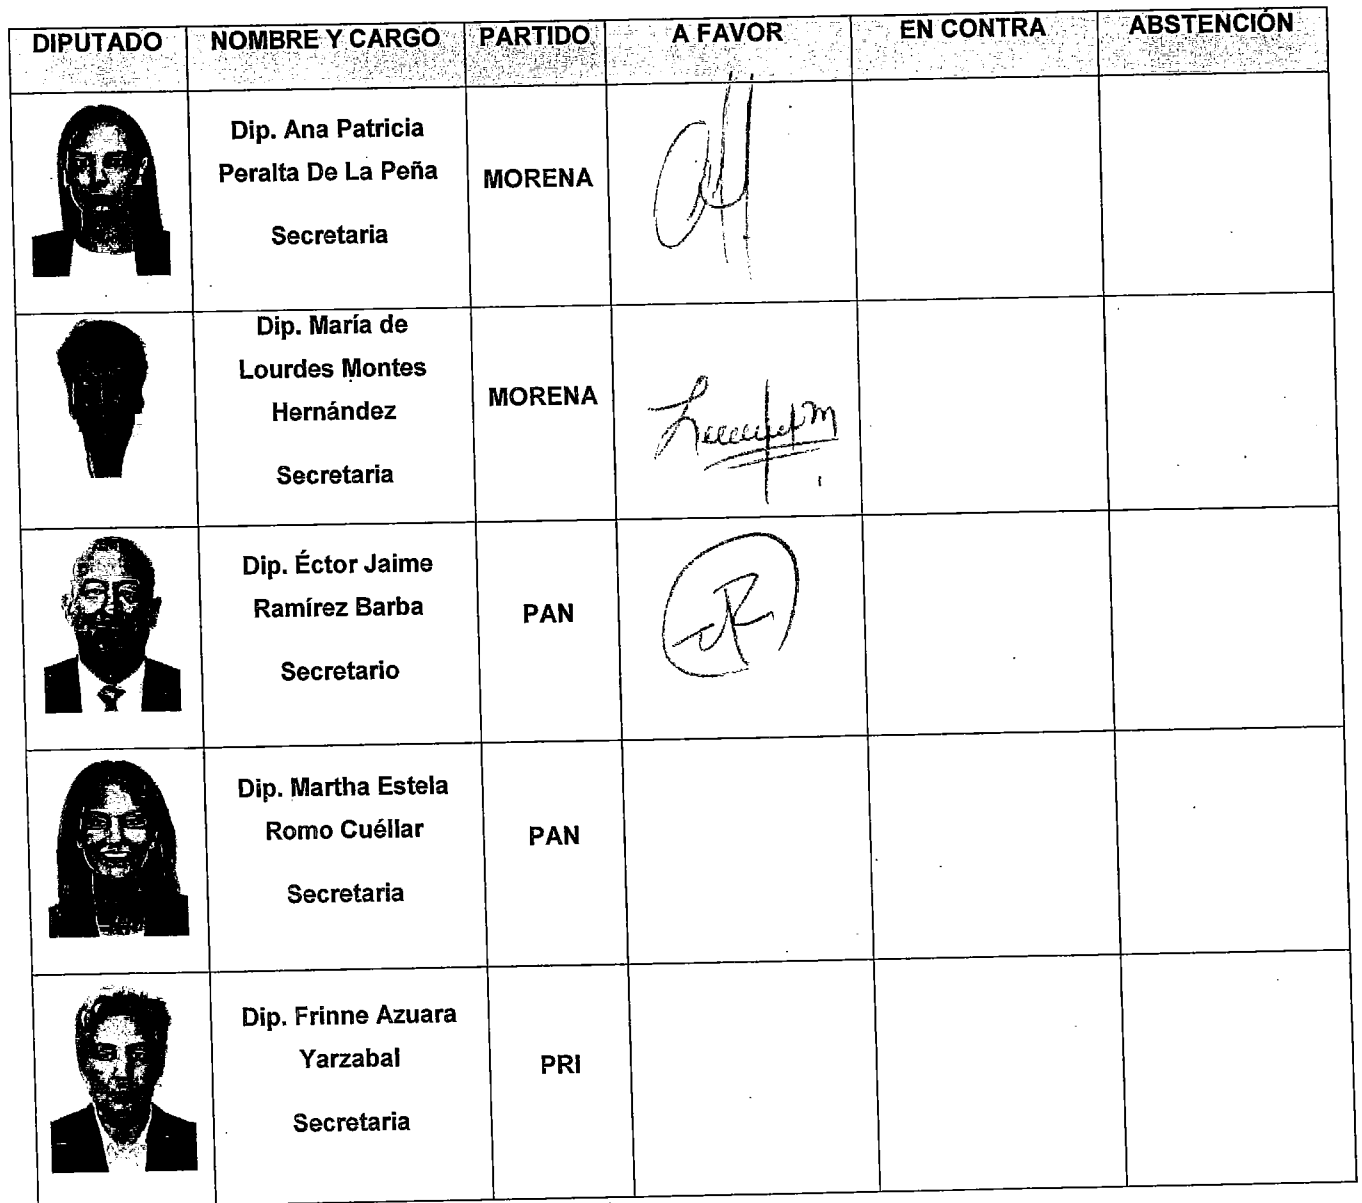 DIPUTADO NOMBRE Y CARGO PARTIDO A FAVOR EN CONTRA ABSTENCIÓN
Dip. Ana Patricia
Peralta De La Peña
Secretaria
MORENA
Dip. María de
Lourdes Montes
Hernández
Secretaria
MORENA
Dip. Éctor Jaime
Ramírez Barba
Secretario
PAN
Dip. Martha Estela
Romo Cuéllar
Secretaria
PAN
Dip. Frinne Azuara
Yarzabal
Secretaria
PRI